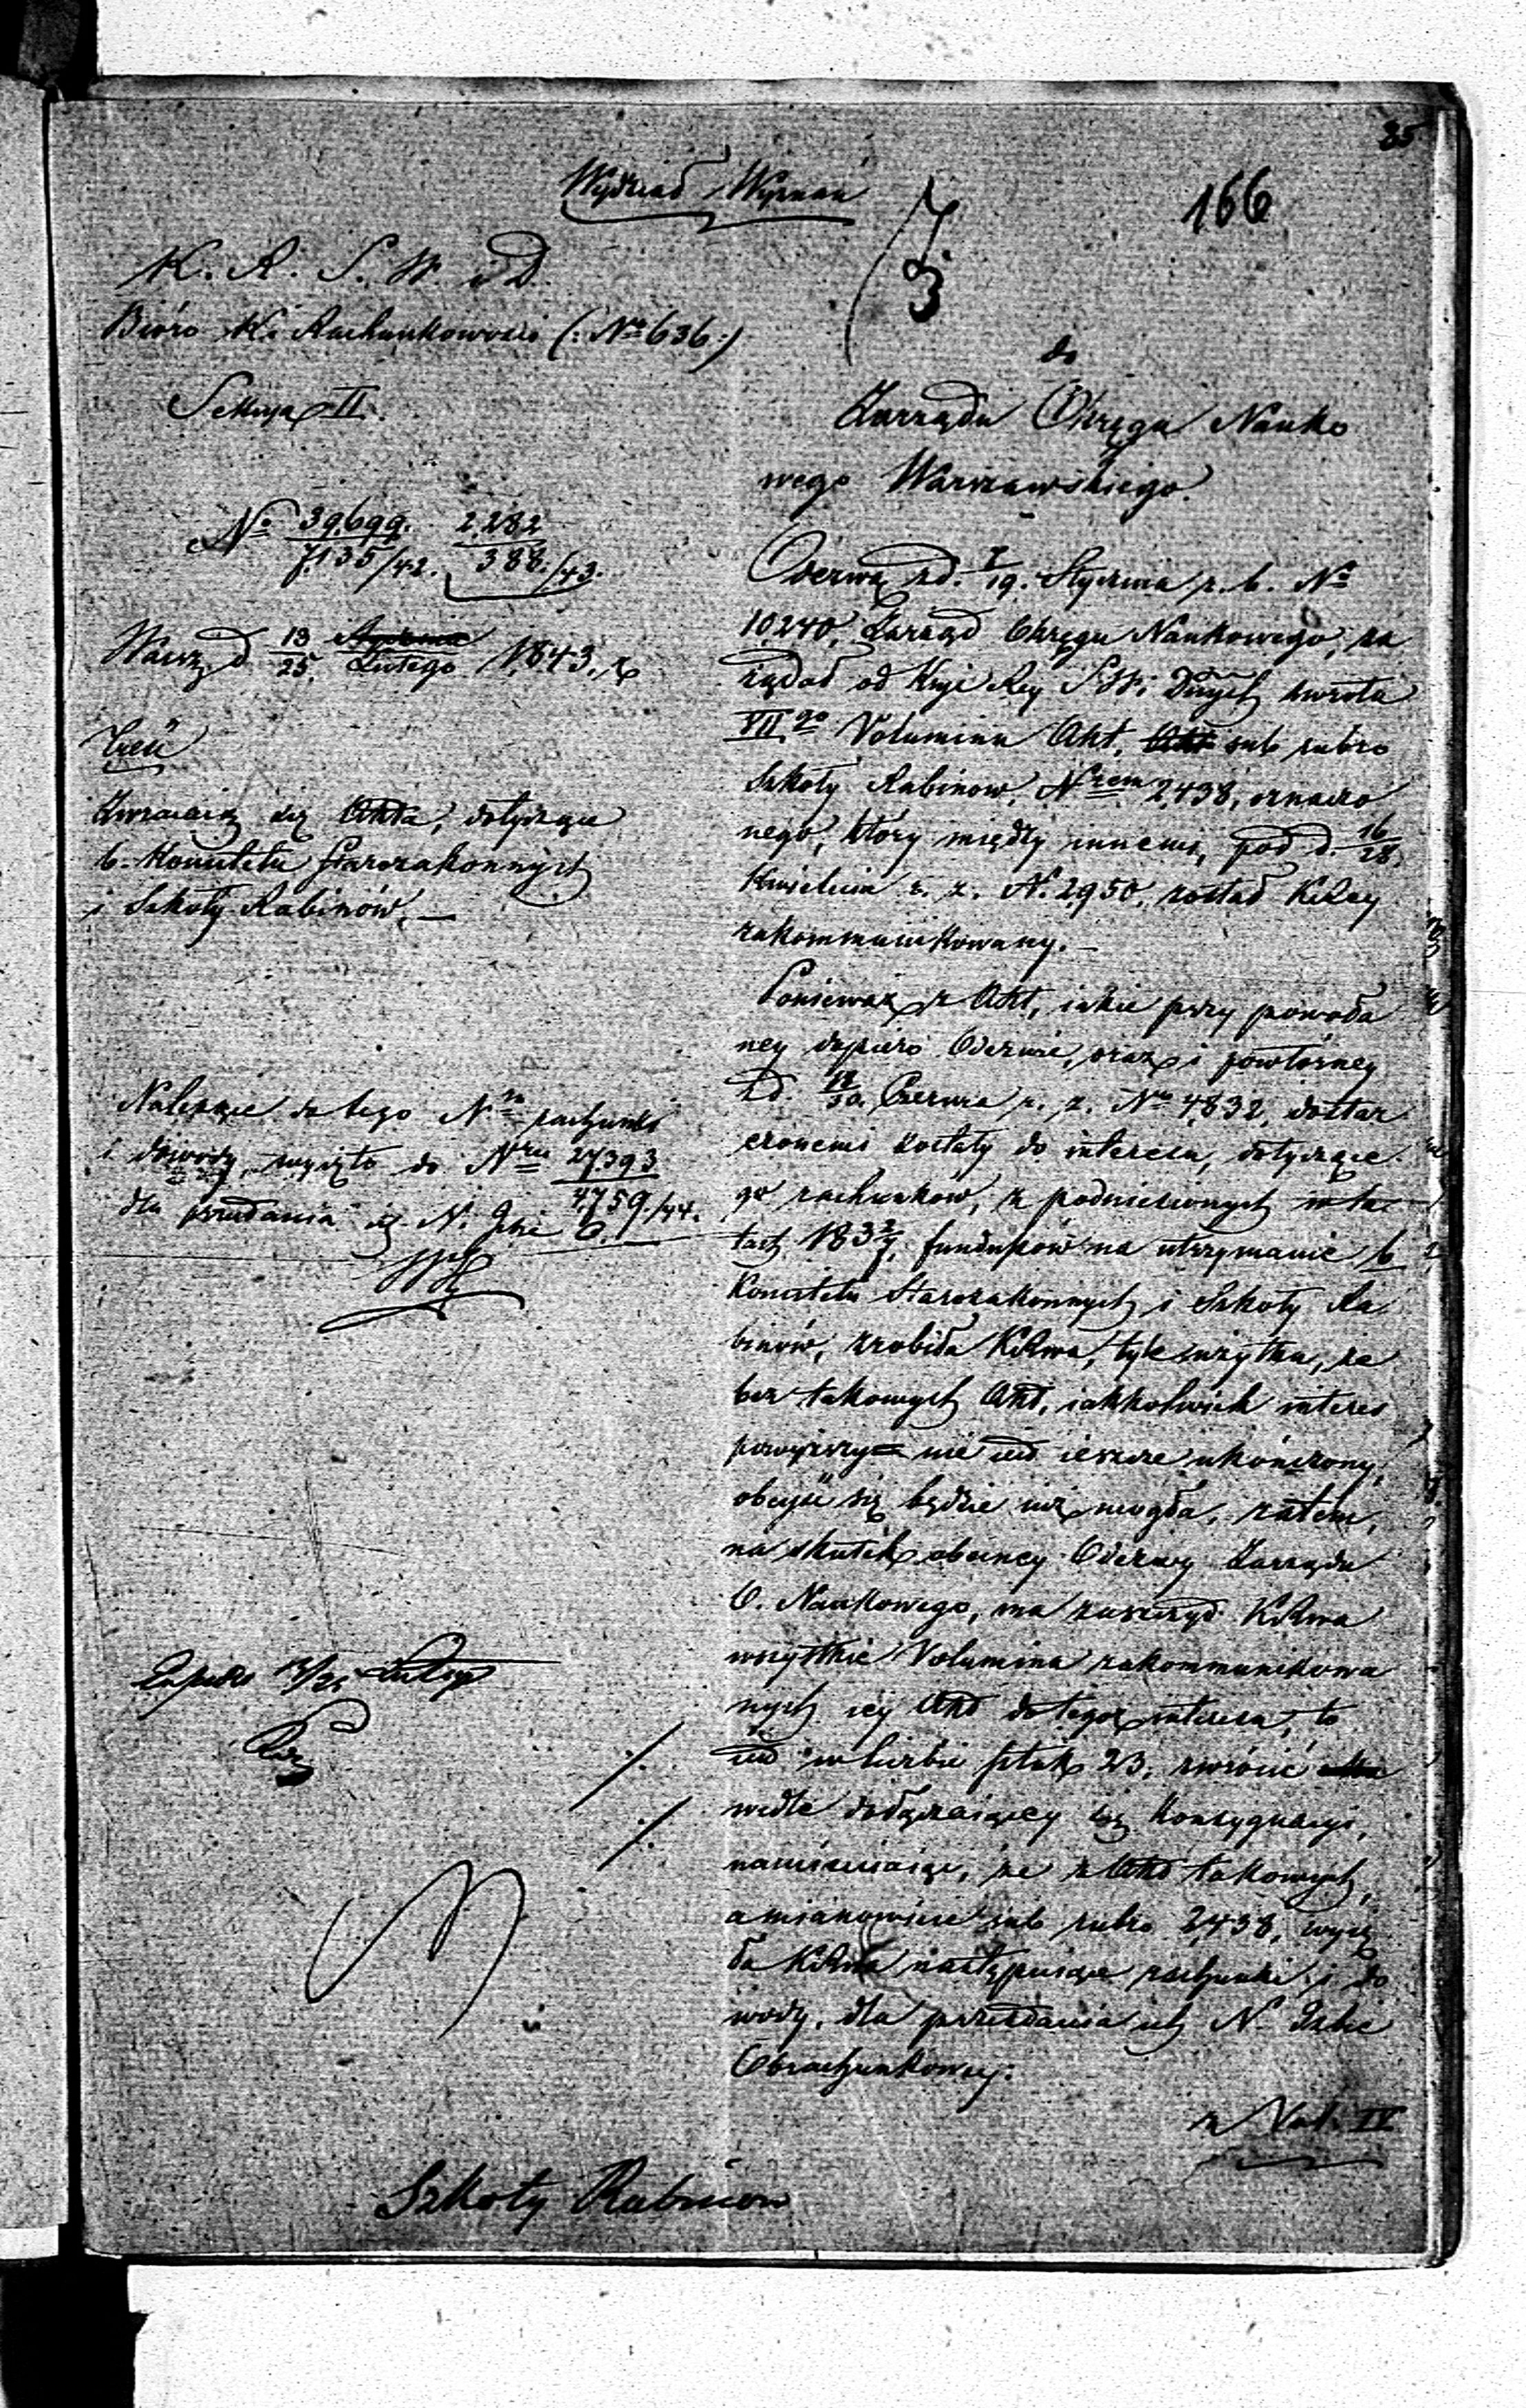 35
Wydział Wyznań
166
K. R. S. W. i D.
Bióro K. Rachunkowości (: No 636 :)
Sekcya II.
No 39,699. 2,282
7,135/42. 388./43.
Warsz. d. 13 Stycznia
25. Lutego 1843. r.
Treść
Zwracaią się Akta, dotyczące
b. Komitetu Starozakonnych
i Szkoły Rabinów. —
Należące do tego Nru rachunki
i dowody wzięto do Nru 27,393
4,759/44.
dla przesłania ich N. Izbie O.
Exped. 13/25 Lutego
do
Zarządu Okręgu Nauko
wego Warszawskiego.
Odezwą z d. 7/19. Stycznia r. b. No
10,240, Zarząd Okręgu Naukowego, za
żądał od Kryi Rey S W i Dnych zwrotu
VII.go Voluminu Akt, sub rubro
Szkoły Rabinow, Nrem 2,438, oznaczo
nego, który między innemi, pod d. 16/28.
Kwietnia r. z. N. 2950, został KRey
zakommunikowany. —
Ponieważ z Akt, iakie przy powoła
ney dopiero Odezwie, oraz i powtórney
z d. 18/30. Czerwca r. z. Nro 4,832, dostar
czonemi zostały do interesu, dotyczące
go rachunków, z podniesionych w la
tach 183 2/7, funduszów na utrzymanie b
Komitetu Starozakonnych i Szkoły Ra
binów, zrobiła KRwa, tyle użytku, że
bez takowych Akt, iakkolwiek interes
powyższy nie iest ieszcze ukończony,
obeyść się będzie iuż mogła, zatem,
na skutek obecney Odezwy Zarządu
O. Naukowego, ma zaszczyt KRwa
wszystkie Volumina zakommunikowa
nych iey Akt do tegoż interesu, to
iest w liczbie sztuk 23, zwrócić
wedle dołączaiącey się Konsygnacyi,
namieniaiąc, że z Akt takowych,
a mianowicie sub rubro 2,438, wyię
ła KRwa następuiące rachunki i do
wody, dla przesłania ich N. Izbie
Obrachunkowey:
z Vol. IV
Szkoły Rabinow